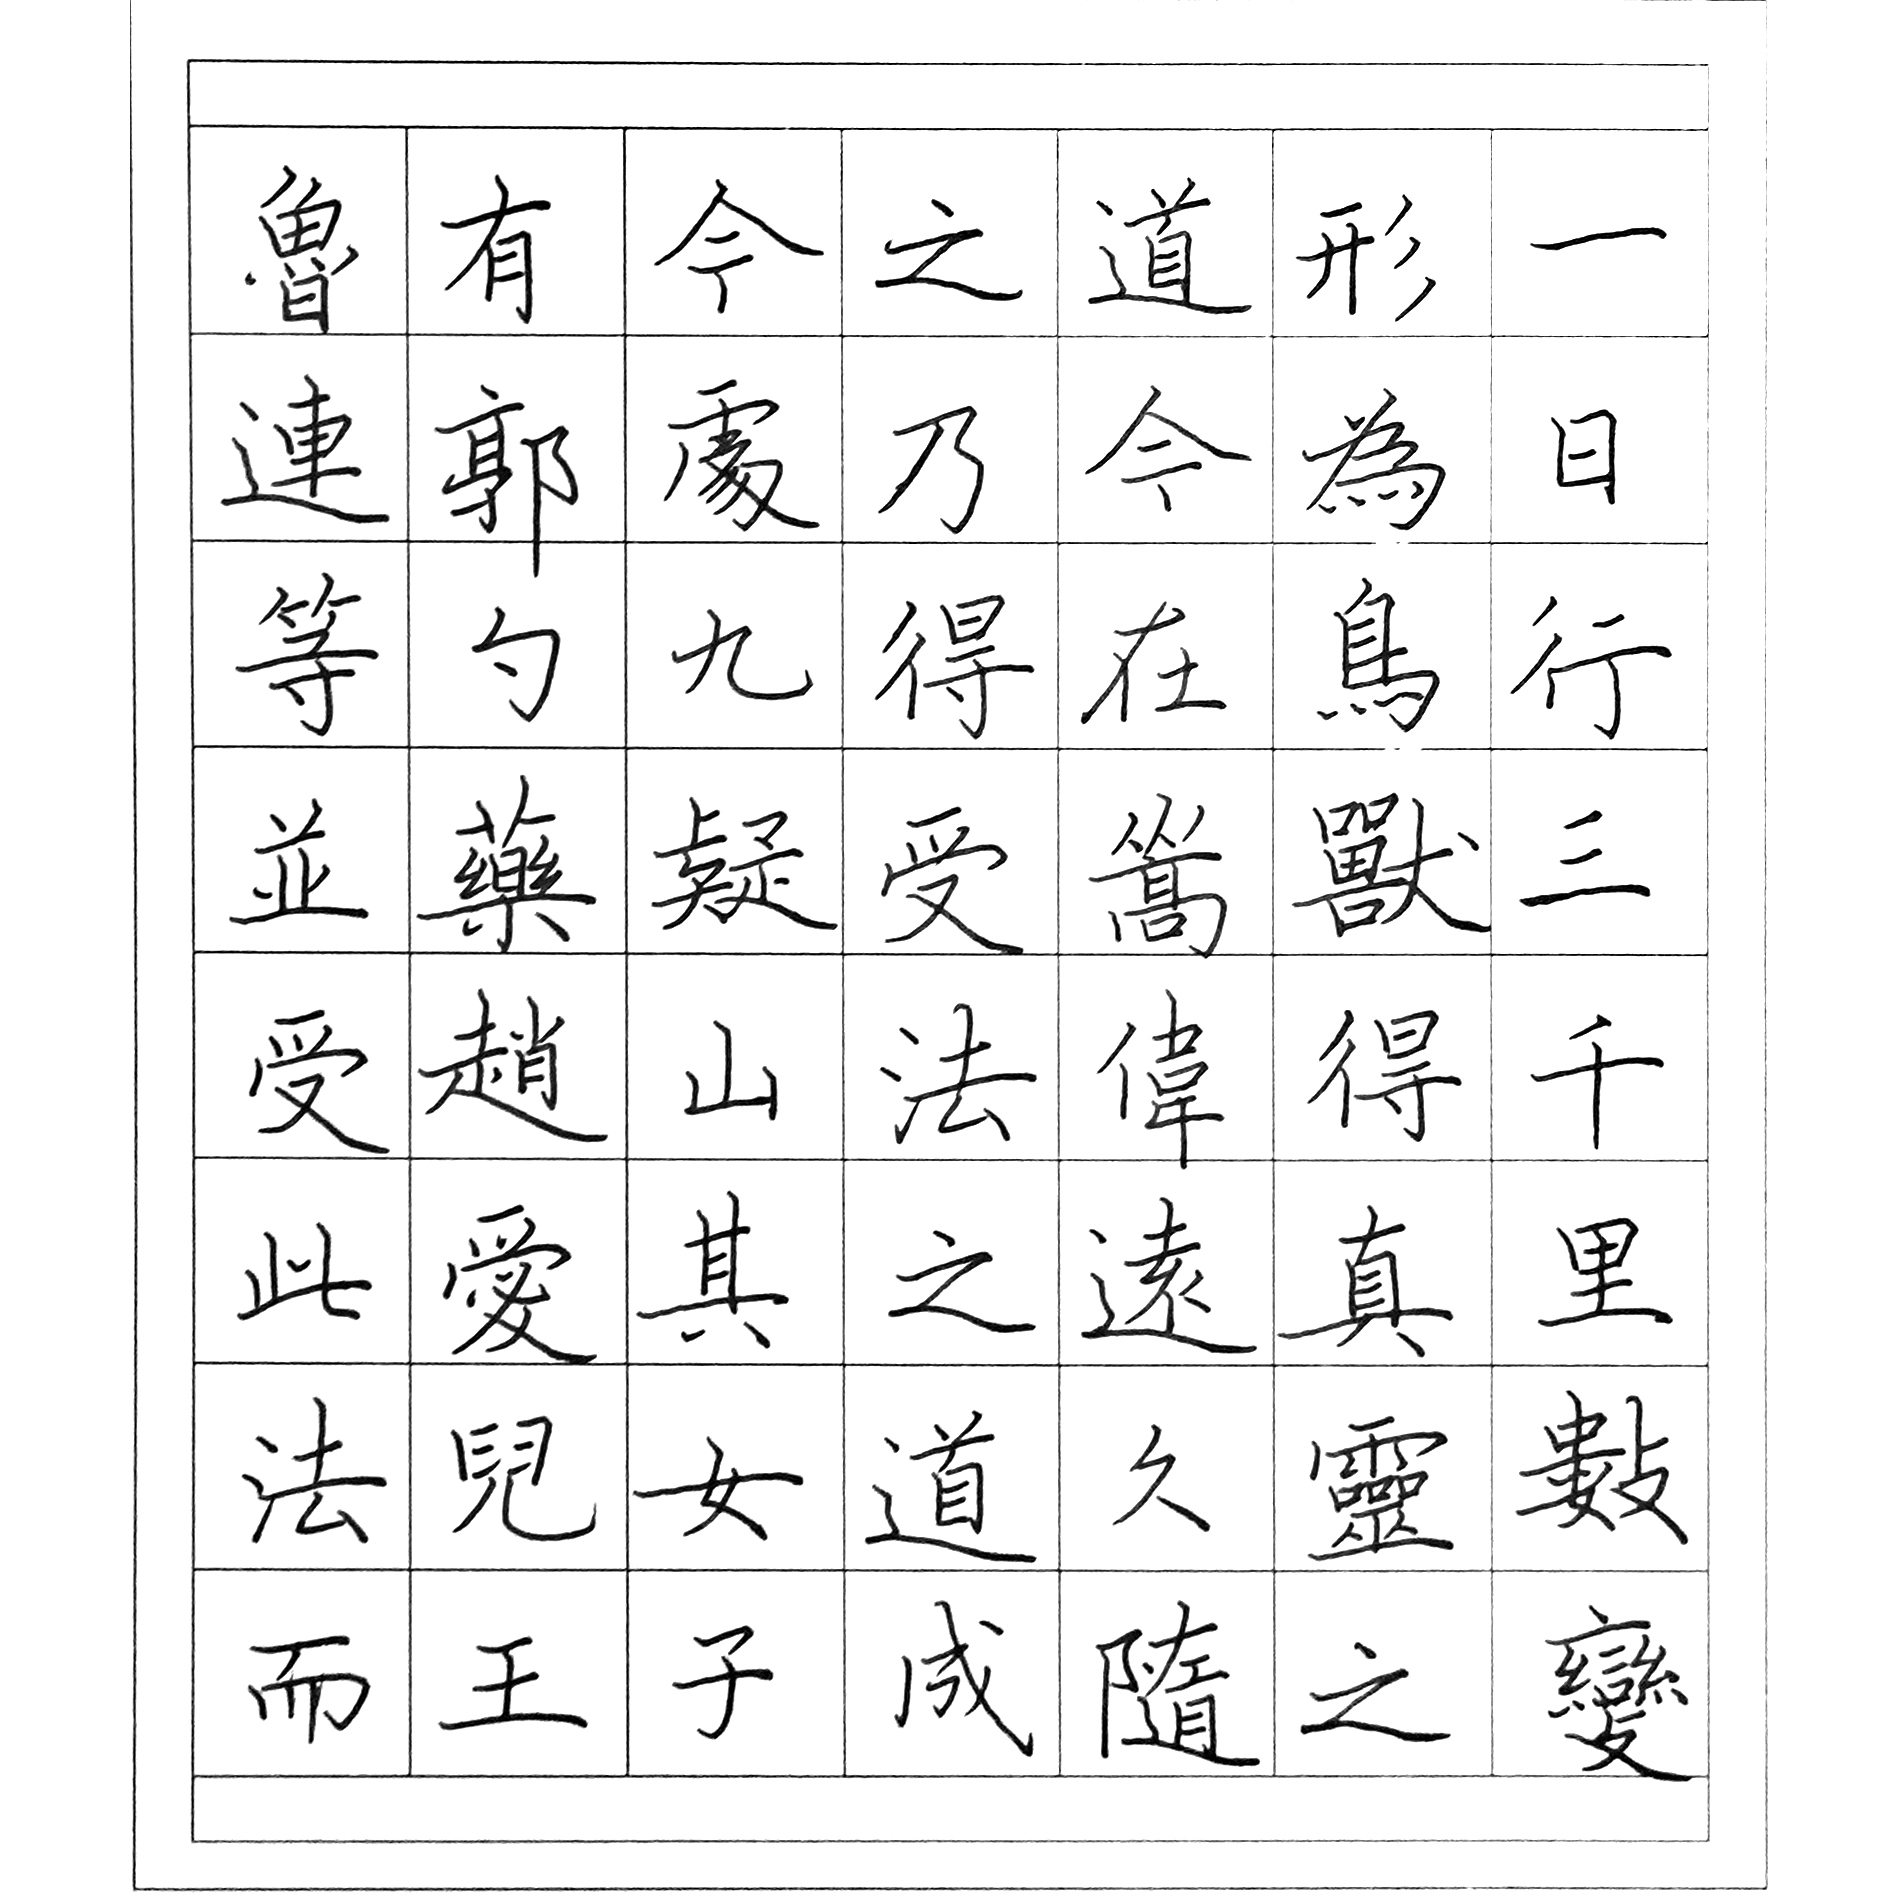 一日行三千里數變
形為鳥獸得真靈之
道今在嵩偉遠久隨
之乃得受法之道成
今處九疑山其女子
有郭勺藥趙愛兒王
魯連等並受此法而